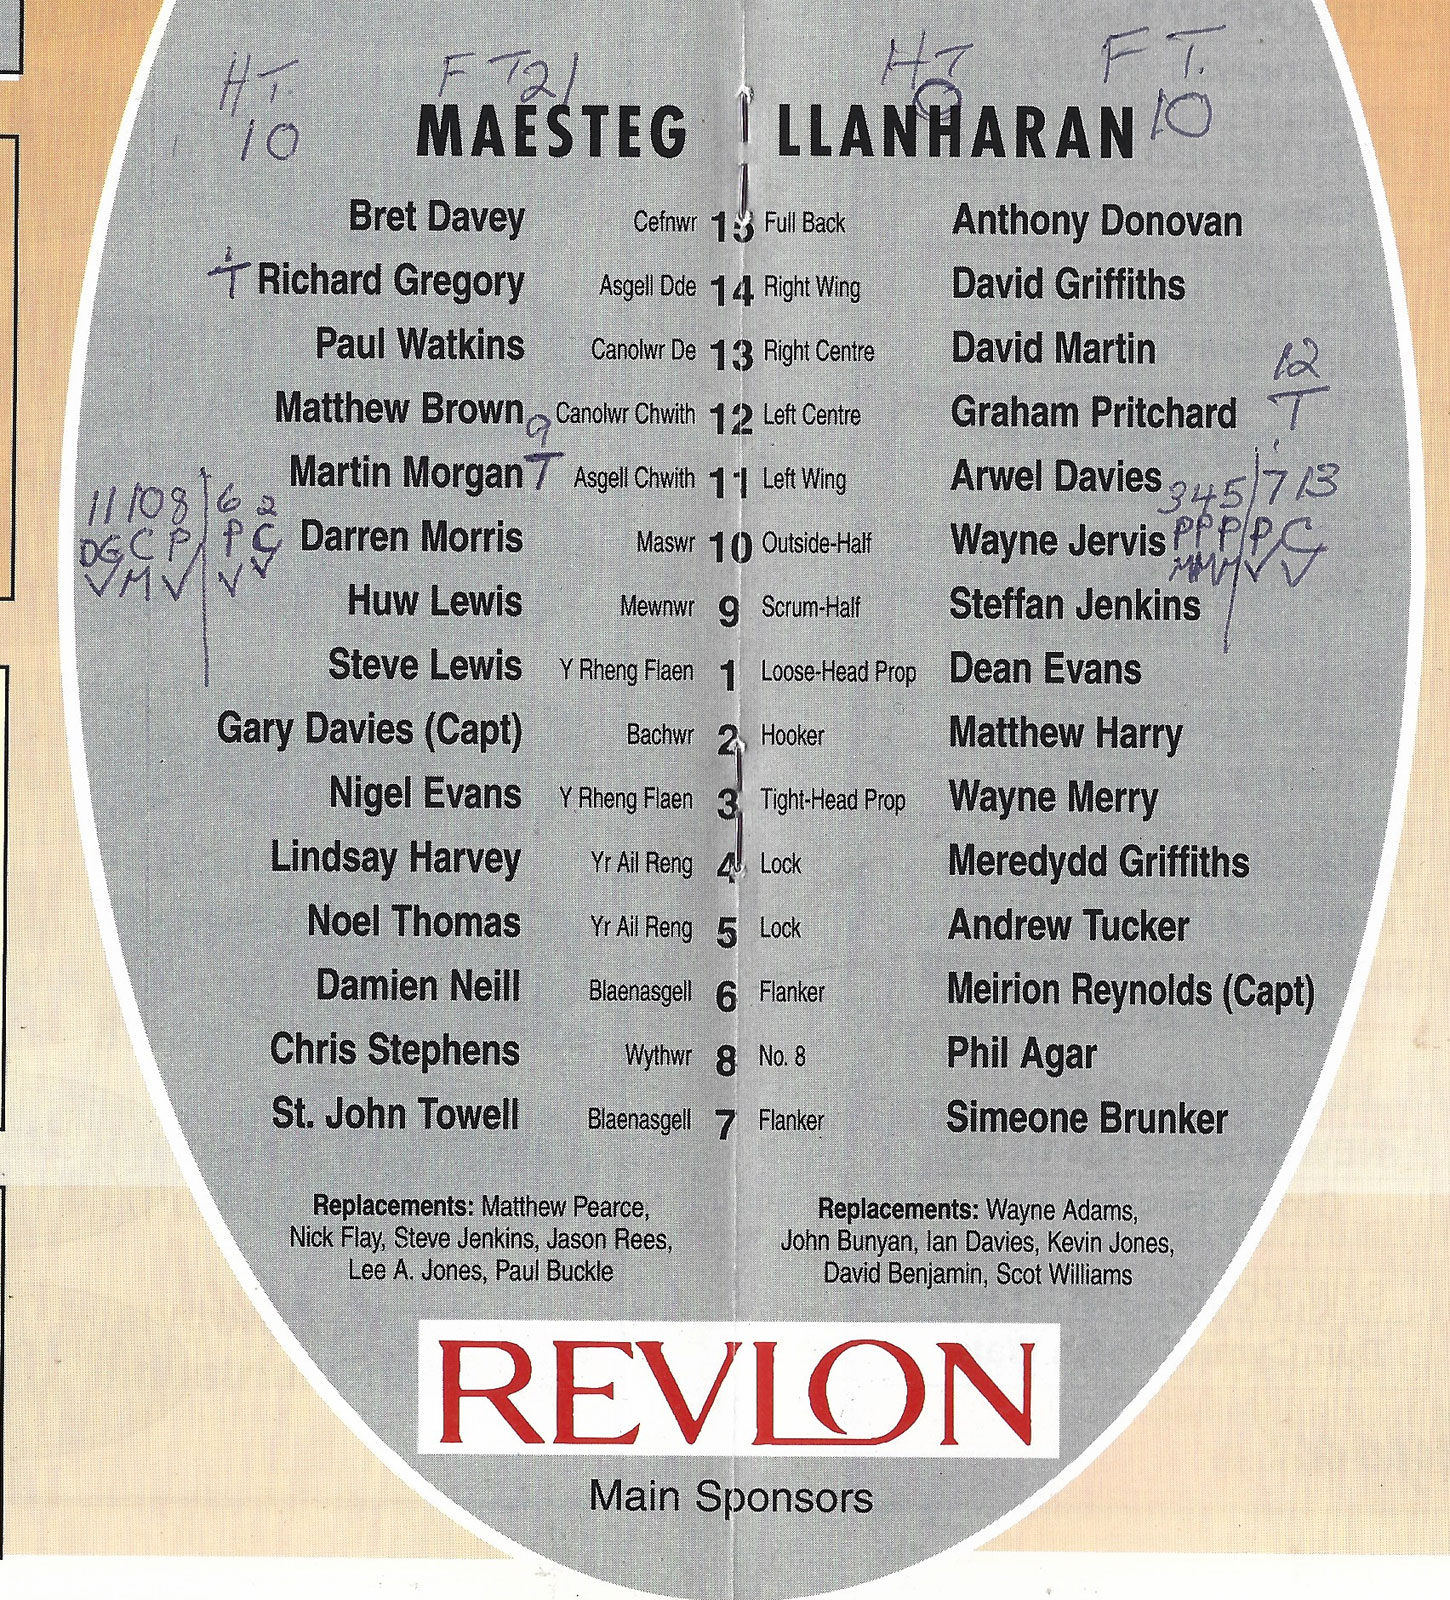 HT. FT 21 HT FT.
10 0 10
MAESTEG LLANHARAN
Bret Davey Cefnwr 15 Full Back Anthony Donovan
1
T Richard Gregory Asgell Dde 14 Right Wing David Griffiths
Paul Watkins Canolwr De 13 Right Centre David Martin 12
Matthew Brown Canolwr Chwith 12 Left Centre Graham Pritchard T
9
Martin Morgan T Asgell Chwith 11 Left Wing Arwel Davies
11 10 8 6 2 3 4 5 7 13
DG C P P C Darren Morris Maswr 10 Outside-Half Wayne Jervis P P P P C
✓ M ✓ ✓ ✓ M M M ✓ ✓
Huw Lewis Mewnwr 9 Scrum-Half Steffan Jenkins
Steve Lewis Y Rheng Flaen 1 Loose-Head Prop Dean Evans
Gary Davies (Capt) Bachwr 2 Hooker Matthew Harry
Nigel Evans Y Rheng Flaen 3 Tight-Head Prop Wayne Merry
Lindsay Harvey Yr Ail Reng 4 Lock Meredydd Griffiths
Noel Thomas Yr Ail Reng 5 Lock Andrew Tucker
Damien Neill Blaenasgell 6 Flanker Meirion Reynolds (Capt)
Chris Stephens Wythwr 8 No. 8 Phil Agar
St. John Towell Blaenasgell 7 Flanker Simeone Brunker
Replacements: Matthew Pearce,
Nick Flay, Steve Jenkins, Jason Rees,
Lee A. Jones, Paul Buckle
Replacements: Wayne Adams,
John Bunyan, Ian Davies, Kevin Jones,
David Benjamin, Scot Williams
REVLON
Main Sponsors